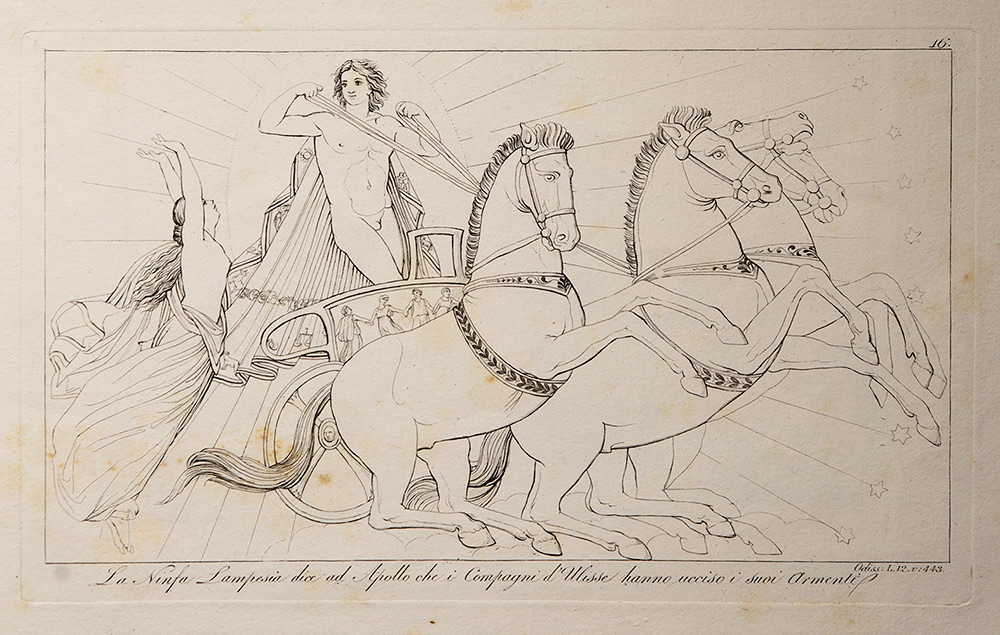 16.
Odiss: L.12. v: 443.
La Ninfa Lampesia dice ad Apollo che i Compagni d'Ulisse hanno ucciso i suoi Armenti